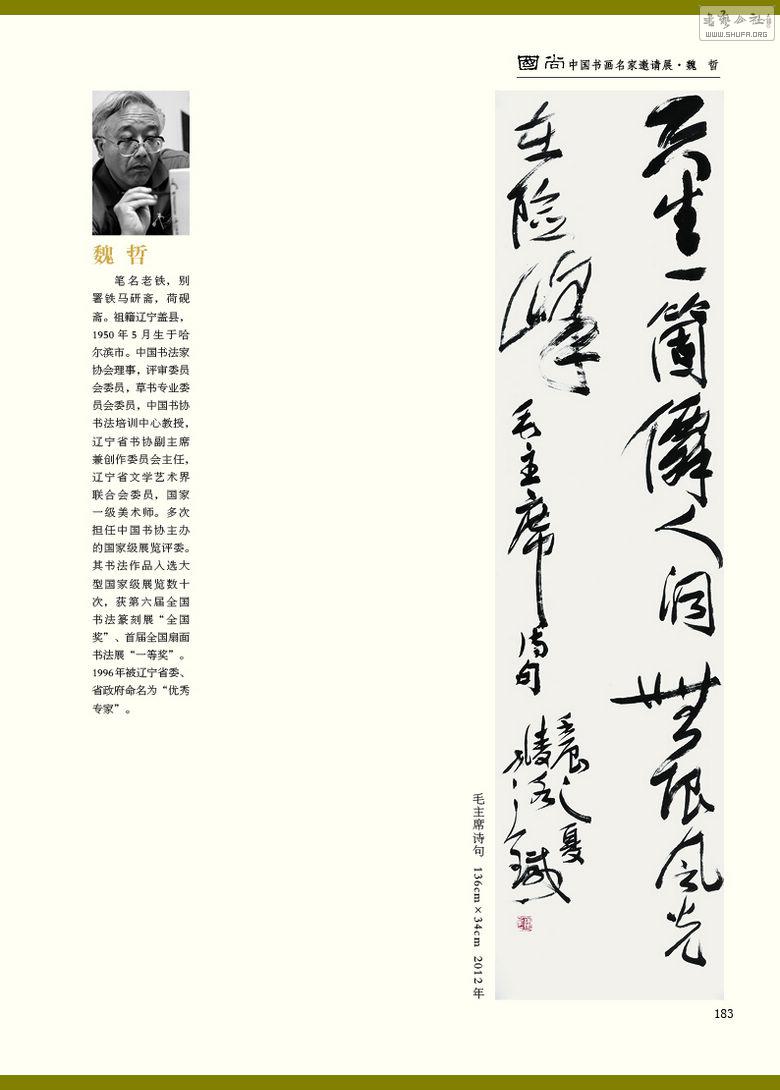 书艺公社
WWW.SHUFA.ORG
國尚中国书画名家邀请展·魏 哲
魏 哲
笔名老铁，别
署铁马研斋，荷砚
斋。祖籍辽宁盖县，
1950年5月生于哈
尔滨市。中国书法家
协会理事，评审委员
会委员，草书专业委
员会委员，中国书协
书法培训中心教授，
辽宁省书协副主席
兼创作委员会主任，
辽宁省文学艺术界
联合会委员，国家
一级美术师。多次
担任中国书协主办
的国家级展览评委。
其书法作品入选大
型国家级展览数十
次，获第六届全国
书法篆刻展“全国
奖”、首届全国扇面
书法展“一等奖”。
1996年被辽宁省委、
省政府命名为“优秀
专家”。
天生一箇僊人洞無限风光
在险峰毛主席诗句
壬辰之夏
毛主席诗句 136cm×34cm 2012年
183